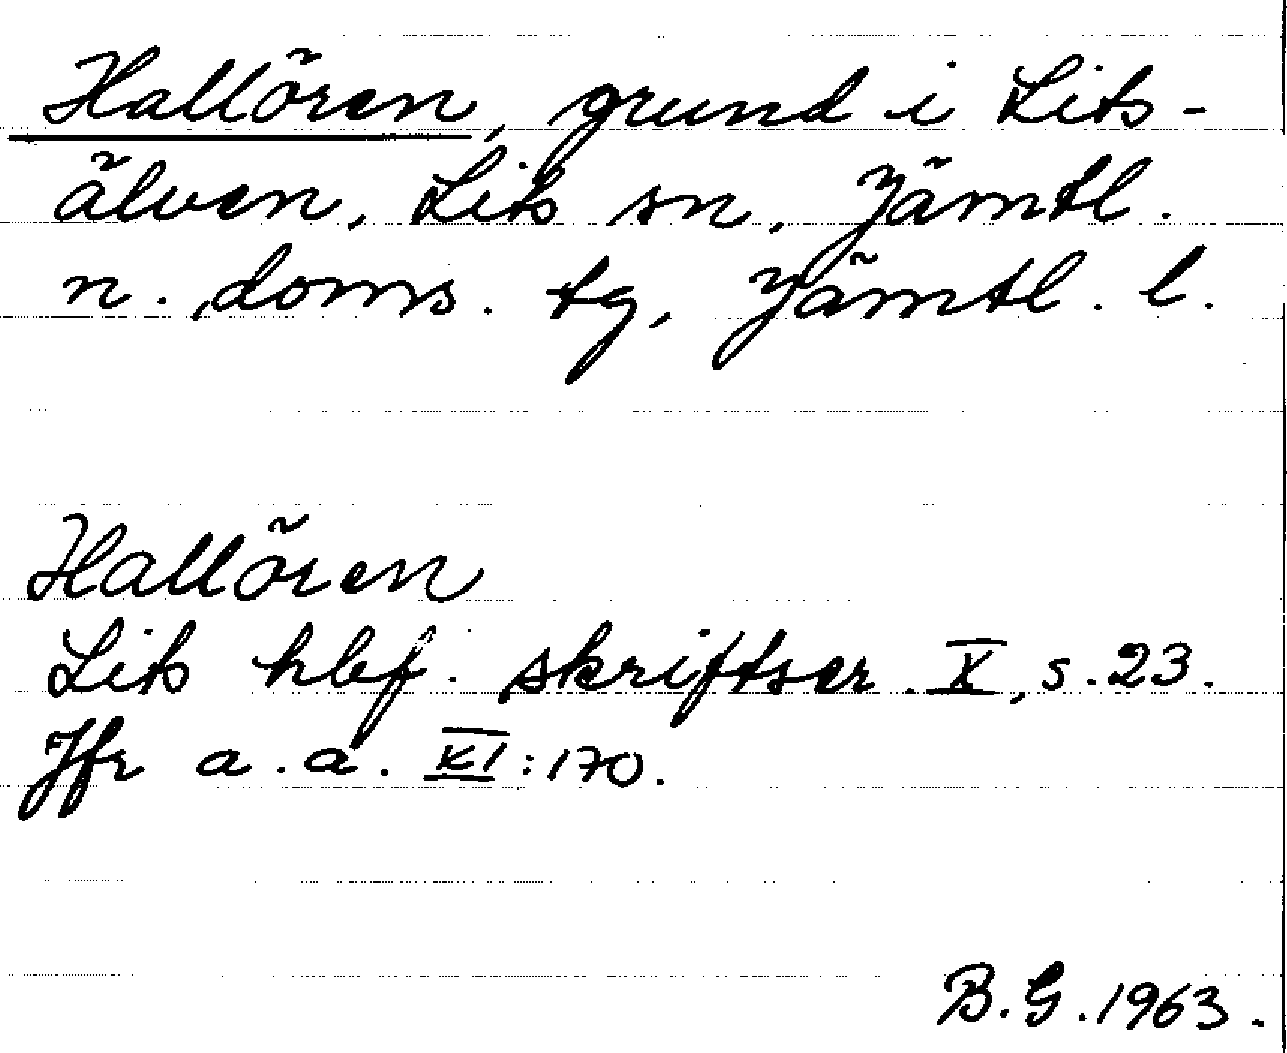 Hallören, grund i Lits-
älven, Lits sn, Jämtl.
n. doms. tg, Jämtl. l.
Hallören
Lits hbf. skriftser. X, s. 23.
Jfr a.a. XI:170.
B.G. 1963.